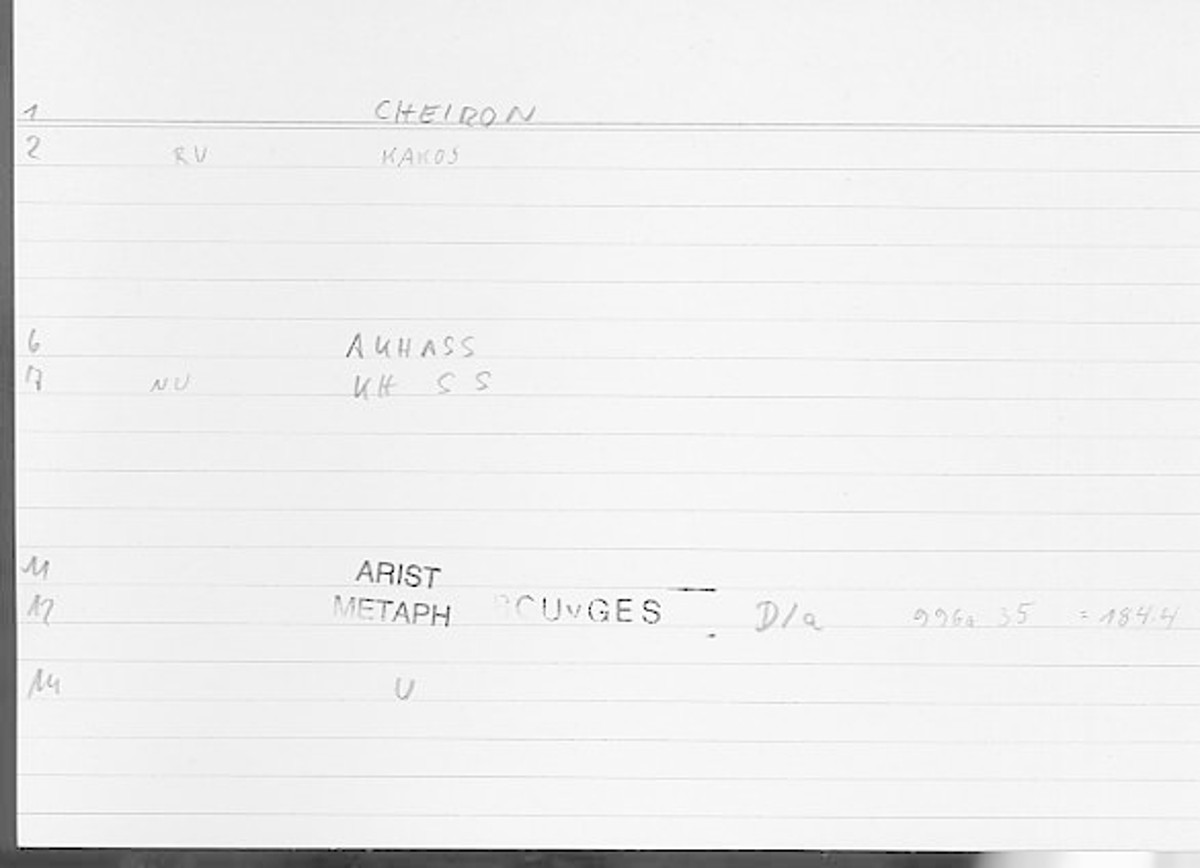 1 CHEIRON
2 RV KAKOS
6 AKHASS
17 NU KH S S
11 ARIST
12 METAPH CUvGES D/a 996a 35 = 184.4
14 U